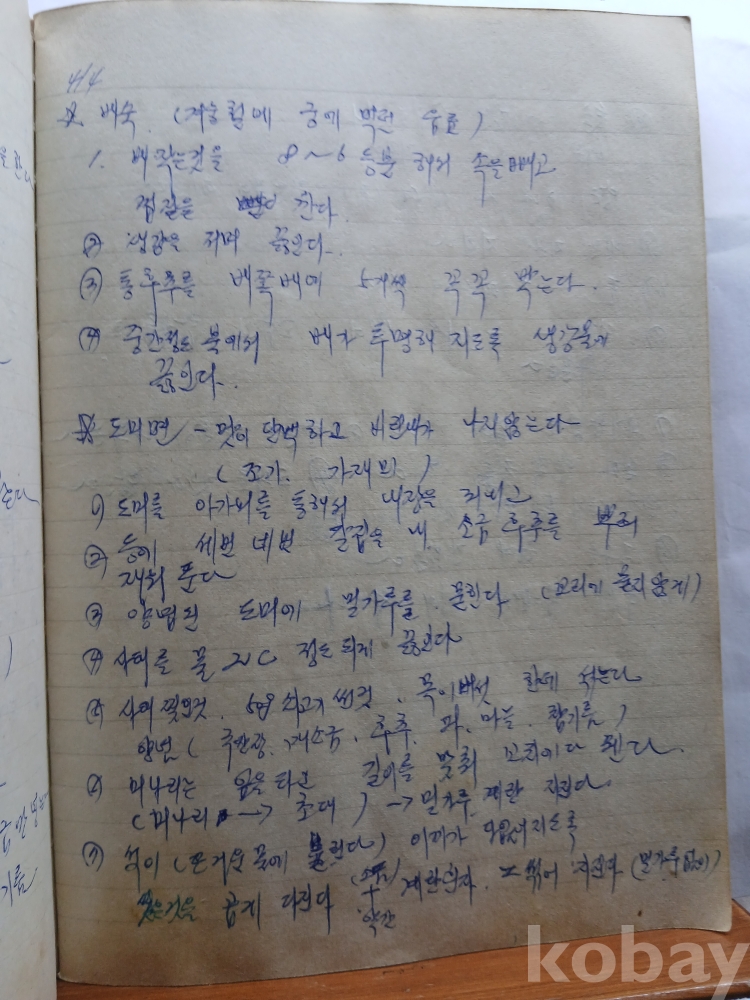 4/4
☆ 배숙. (겨울철에 궁에 음료)
1. 배작는것을 8~6 등분 해서 속을빼고
껍질을 깐다.
② 생강을 저며 끓인다.
③ 통후추를 배쪽배에 5개씩 꼭꼭 박는다.
④ 중간정도 불에서 배가 투명해 지도록 생강물에
끓인다.
☆ 도미면 - 맛이 담백하고 비린내가 나지않는다
(조기. 가재미)
1) 도미를 아가미를 통해서 내장을 꺼내고
② 등에 세번 네번 칼집을 내 소금 후추를 뿌려
재워 둔다
③ 양념된 도미에 밀가루를 묻힌다 (꼬리에 물지않게)
④ 사태를 물 2C 정도 되게 끓인다
⑤ 쇠고기 썬것. 목이버섯 한데 섞는다
양념 (국간장. 깨소금. 후추. 파. 마늘. 참기름)
⑥ 미나리는 잎을 길이를 맞춰 꼬치에다 꿴다.
(미나리 → 초대) → 밀가루. 계란 지진다.
⑦ 석이 (뜨거운 물에 불린다) 이끼가 지도록
것을 곱게 다진다 계란흰자. 지진다 (밀가루없이)
약간
kobay